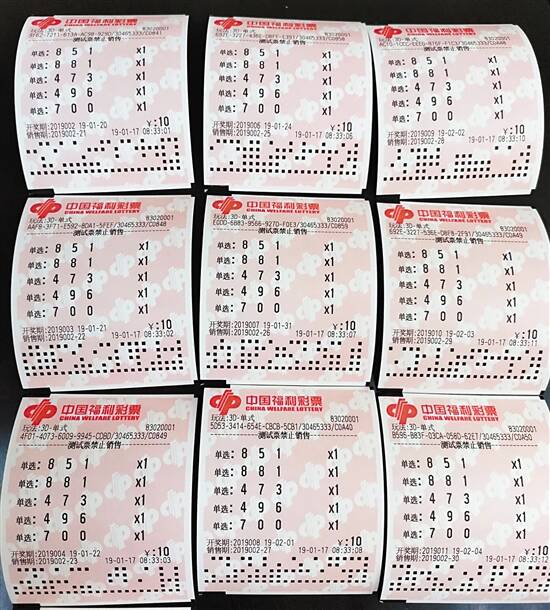 中国福利彩票
CHINA WELFARE LOTTERY
玩法:3D-单式 83020001
测试票禁止销售
单选: 8 5 1 x1
单选: 8 8 1 x1
单选: 4 7 3 x1
单选: 4 9 6 x1
单选: 7 0 0 x1
开奖期:2019002 19-01-20 ¥:10
销售期:2019002-21 19-01-17 08:33:01
中国福利彩票
CHINA WELFARE LOTTERY
玩法:3D-单式 83020001
测试票禁止销售
单选: 8 5 1 x1
单选: 8 8 1 x1
单选: 4 7 3 x1
单选: 4 9 6 x1
单选: 7 0 0 x1
开奖期:2019006 19-01-24 ¥:10
销售期:2019002-25 19-01-17 08:33:06
中国福利彩票
CHINA WELFARE LOTTERY
玩法:3D-单式 83020001
测试票禁止销售
单选: 8 5 1 x1
单选: 8 8 1 x1
单选: 4 7 3 x1
单选: 4 9 6 x1
单选: 7 0 0 x1
开奖期:2019009 19-02-02 ¥:10
销售期:2019002-28 19-01-17 08:33:10
中国福利彩票
CHINA WELFARE LOTTERY
玩法:3D-单式 83020001
AAF8-3F71-E592-8DA1-5FEF/30465333/C0848
测试票禁止销售
单选: 8 5 1 x1
单选: 8 8 1 x1
单选: 4 7 3 x1
单选: 4 9 6 x1
单选: 7 0 0 x1
开奖期:2019003 19-01-21 ¥:10
销售期:2019002-22 19-01-17 08:33:02
中国福利彩票
CHINA WELFARE LOTTERY
玩法:3D-单式 83020001
测试票禁止销售
单选: 8 5 1 x1
单选: 8 8 1 x1
单选: 4 7 3 x1
单选: 4 9 6 x1
单选: 7 0 0 x1
开奖期:2019007 19-01-31 ¥:10
销售期:2019002-26 19-01-17 08:33:07
中国福利彩票
CHINA WELFARE LOTTERY
玩法:3D-单式 83020001
692E-3227-536E-D8F8-2F91/30465333/C0A49
测试票禁止销售
单选: 8 5 1 x1
单选: 8 8 1 x1
单选: 4 7 3 x1
单选: 4 9 6 x1
单选: 7 0 0 x1
开奖期:2019010 19-02-03 ¥:10
销售期:2019002-29 19-01-17 08:33:11
中国福利彩票
CHINA WELFARE LOTTERY
玩法:3D-单式 83020001
4F01-4073-6009-9945-CDBD/30465333/C0849
测试票禁止销售
单选: 8 5 1 x1
单选: 8 8 1 x1
单选: 4 7 3 x1
单选: 4 9 6 x1
单选: 7 0 0 x1
开奖期:2019004 19-01-22 ¥:10
销售期:2019002-23 19-01-17 08:33:03
中国福利彩票
CHINA WELFARE LOTTERY
玩法:3D-单式 83020001
5D53-3414-654E-CBCB-5CB1/30465333/C0A40
测试票禁止销售
单选: 8 5 1 x1
单选: 8 8 1 x1
单选: 4 7 3 x1
单选: 4 9 6 x1
单选: 7 0 0 x1
开奖期:2019008 19-02-01 ¥:10
销售期:2019002-27 19-01-17 08:33:08
中国福利彩票
CHINA WELFARE LOTTERY
玩法:3D-单式 83020001
B596-B83F-03CA-056D-62E7/30465333/C0A50
测试票禁止销售
单选: 8 5 1 x1
单选: 8 8 1 x1
单选: 4 7 3 x1
单选: 4 9 6 x1
单选: 7 0 0 x1
开奖期:2019011 19-02-04 ¥:10
销售期:2019002-30 19-01-17 08:33:12